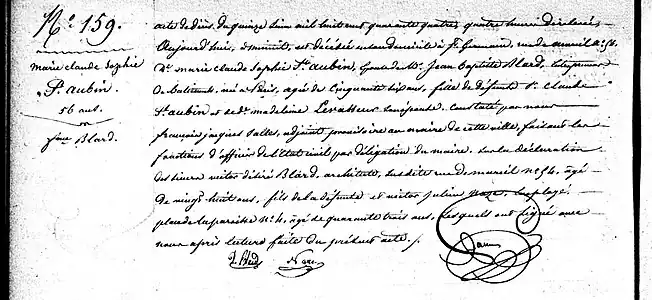 N.º 159.
marie claude Sophie
St. aubin.
56 ans.
fme Blard.
acte de décès, du quinze Juin mil huit cent quarante quatre, quatre heures de relevée,
Aujourd'hui, à minuit, est décédée en son domicile à St. Germain, rue de mareil n.º 54.
De. marie claude Sophie St. aubin, épouse de Mr. Jean Baptiste Blard,
de bâtiment, née à Paris, âgée de Cinquante six ans, fille de défunt Sr. Claude
St. aubin et de De. madeleine Levasseur. Constaté par nous
françois jacques adjoint provisoire au maire de cette ville, faisant les
fonctions d'officier de l'état civil par délégation du maire. Sur la déclaration
des Sieurs victor désiré Blard, architecte, susdite rue de mareil n.º 54, âgé
de vingt huit ans, fils de la défunte et victor julien employé,
place de la paroisse n.º 4, âgé de quarante trois ans, lesquels ont signé avec
nous après lecture faite du présent acte.
D. Blard